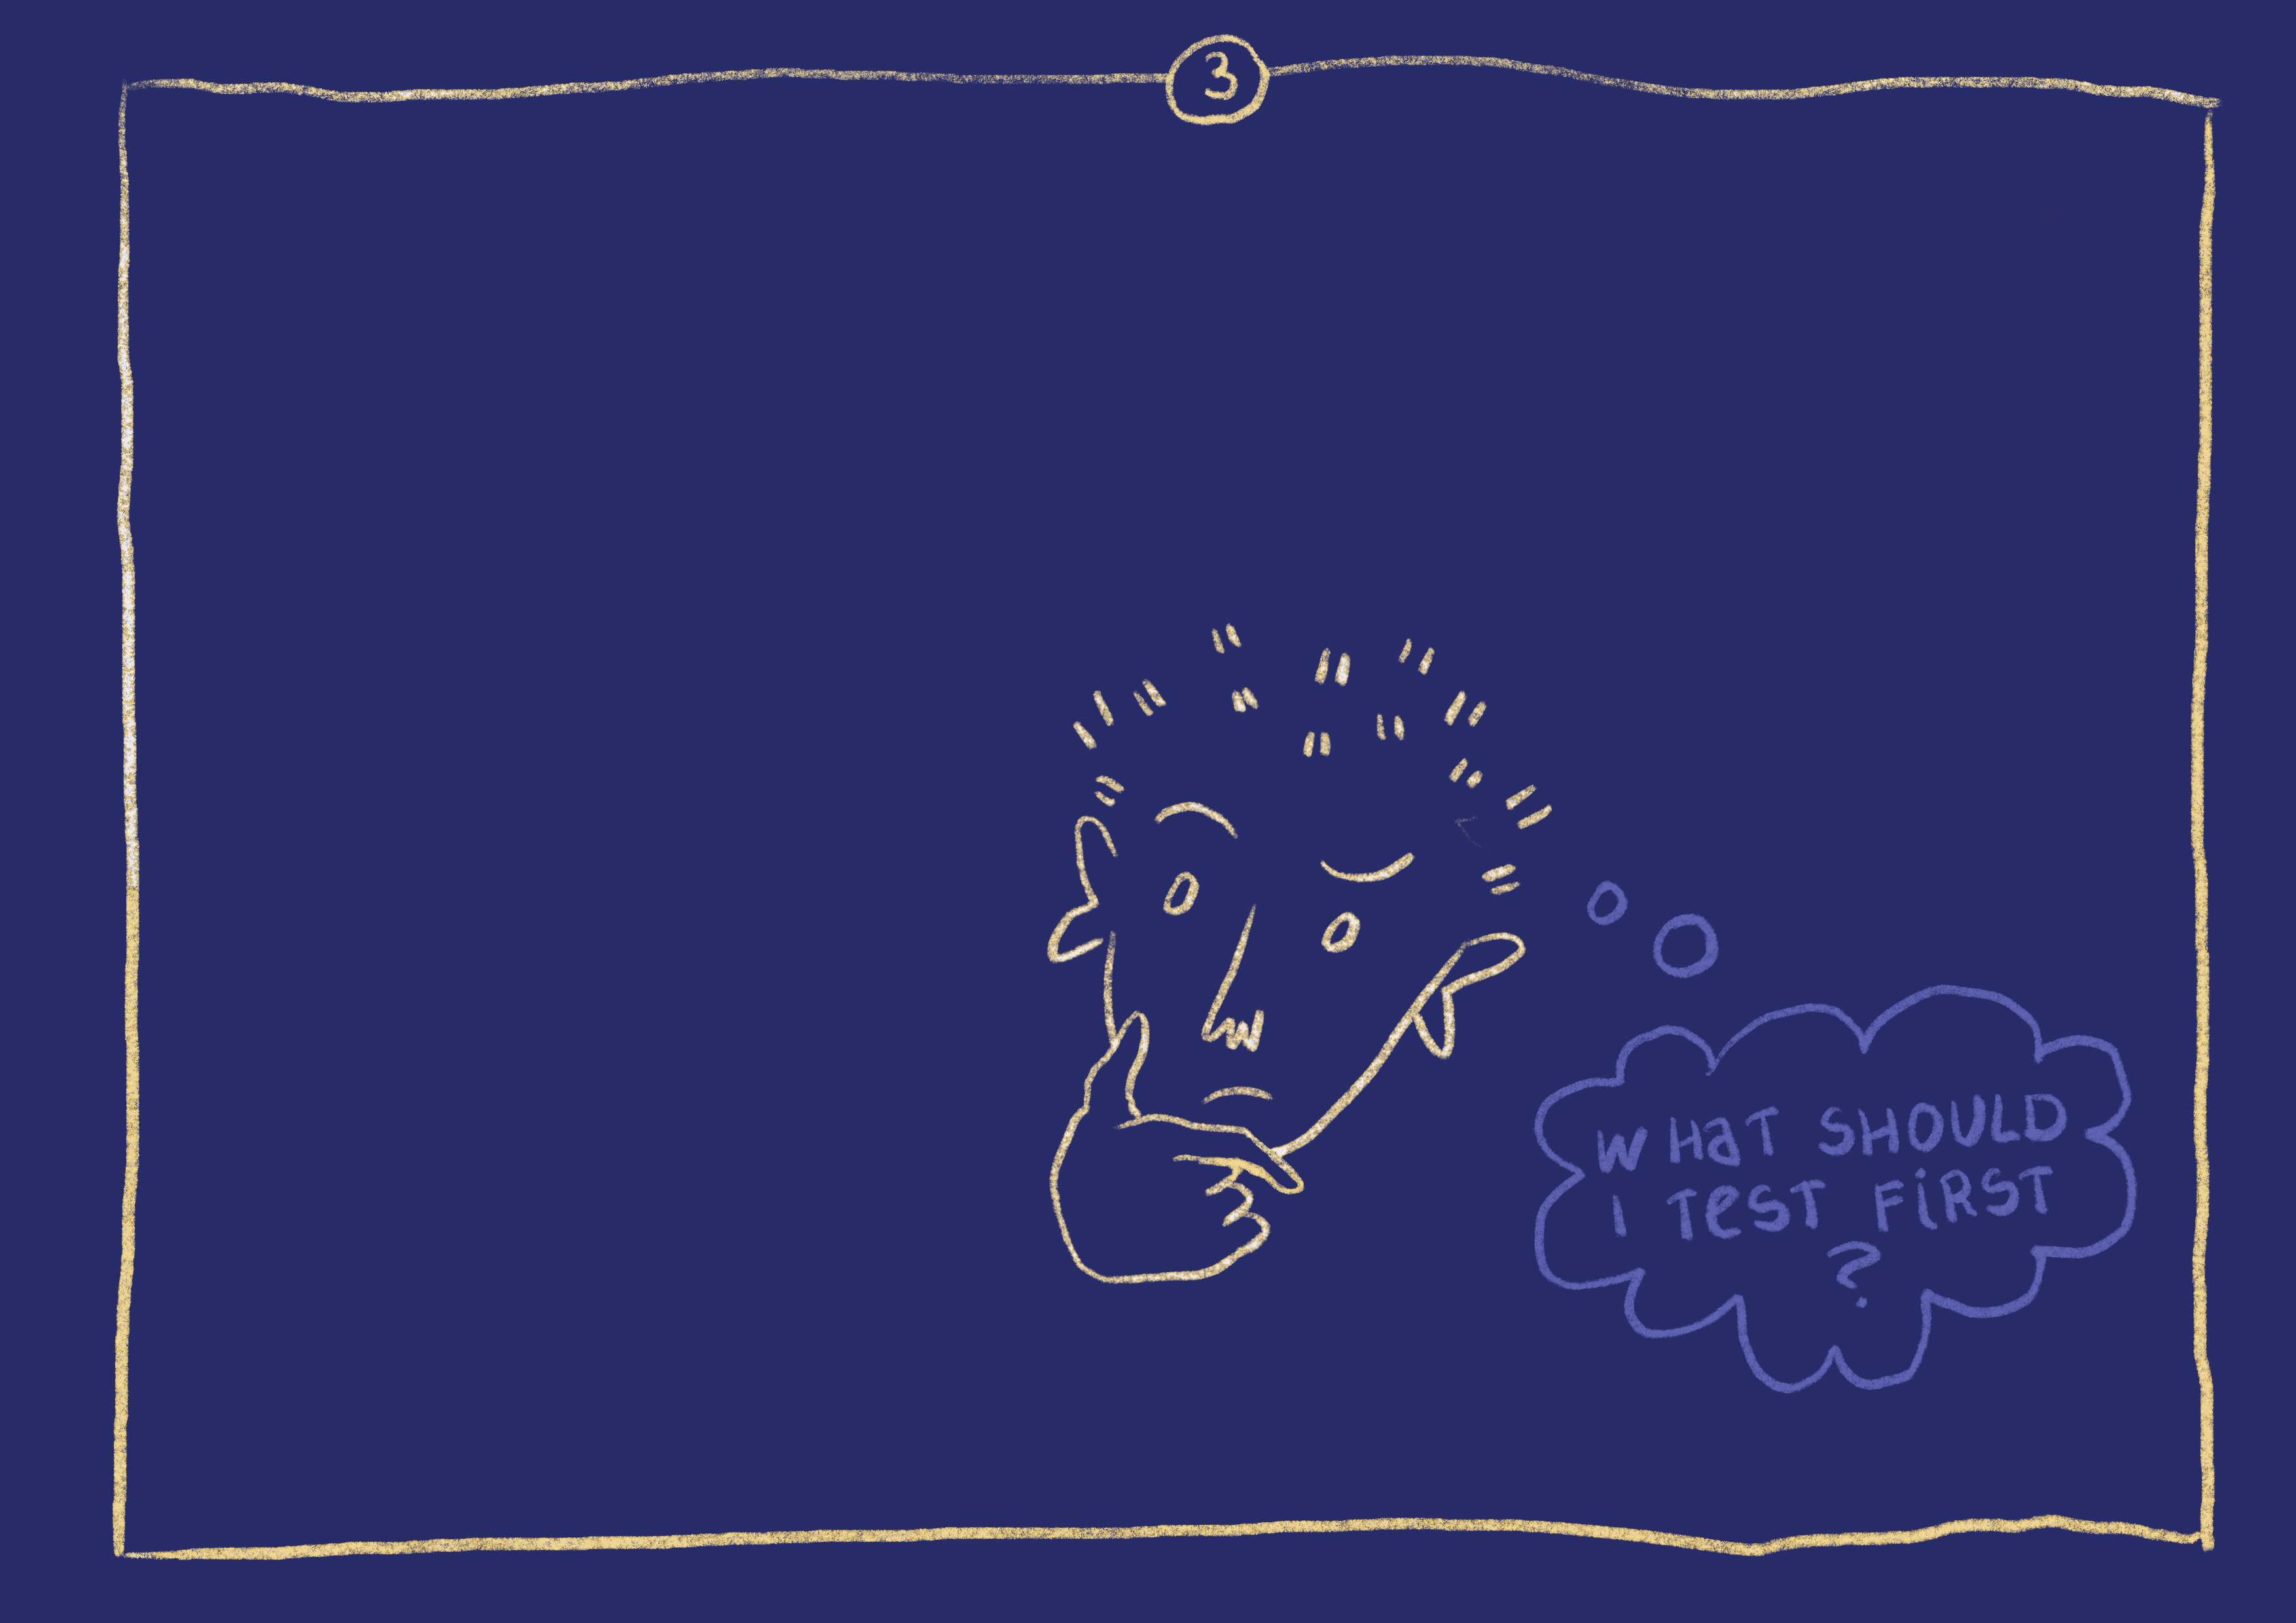 3
WHaT SHOULD
I TeST FiRST
?